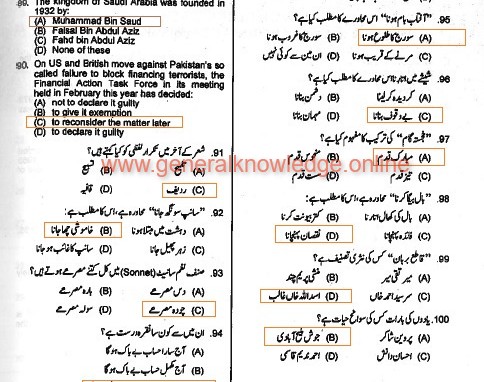 89. The kingdom of Saudi Arabia was founded in
1932 by:
(A) Muhammad Bin Saud
(B) Faisal Bin Abdul Aziz
(C) Fahd bin Abdul Aziz
(D) None of these
90. On US and British move against Pakistan's so
called failure to block financing terrorists, the
Financial Action Task Force in its meeting
held in February this year has decided:
(A) not to declare it guilty
(B) to give it exemption
(C) to reconsider the matter later
(D) to declare it guilty
91. شعر کے آخر میں تکرار لفظی کو کیا کہتے ہیں؟
(B)
(A)
(C) ردیف (D) قافیہ
92. "سانپ سونگھ جانا" محاورہ ہے، اس کا مطلب ہے:
(A) دہشت میں مبتلا ہونا (B) خاموشی چھا جانا
(C) زہر پھیل جانا (D) سانپ کا غائب ہو جانا
93. صنف نظم سانیٹ (Sonnet) میں کل کتنے مصرعے ہوتے ہیں؟
(A) دس مصرعے (B) بارہ مصرعے
(C) چودہ مصرعے (D) سولہ مصرعے
94. ان میں سے کون سا فقرہ درست ہے؟
(A) آج سارا حساب بے باک ہو گیا
(B) آج مکمل حساب بے باک ہو گیا
95. "آفتاب بام ہونا" اس محاورے کا مطلب کیا ہے؟
(A) سورج کا طلوع ہونا (B) سورج کا غروب ہونا
(C) مرنے کے قریب ہونا (D) ان میں سے کوئی نہیں
96. شیشے میں اتارنا اس محاورے کا مطلب کیا ہے؟
(A) گرویدہ کر لینا (B) دشمن بنانا
(C) بے وقوف بنانا (D) مہمان بنانا
97. "خجستہ گام" کی ترکیب کا مفہوم کیا ہے؟
(A) مبارک قدم (B) منحوس قدم
(C) تیز قدم (D) ست قدم
98. "بال بیکا کرنا" محاورہ ہے، اس کا مطلب ہے:
(A) بال کی کھال اتارنا (B) کتر بیونت کرنا
(C) فائدہ پہنچانا (D) نقصان پہنچانا
99. "قاطع برہان" کس کی نثری تصنیف ہے؟
(A) میر تقی میر (B) منشی پریم چند
(C) سر سید احمد خاں (D) اسد اللہ خاں غالب
100. یادوں کی بارات کس کی سوانح حیات ہے؟
(A) پروین شاکر (B) جوش ملیح آبادی
(C) احسان دانش (D) احمد ندیم قاسمی
www.generalknowledge.online